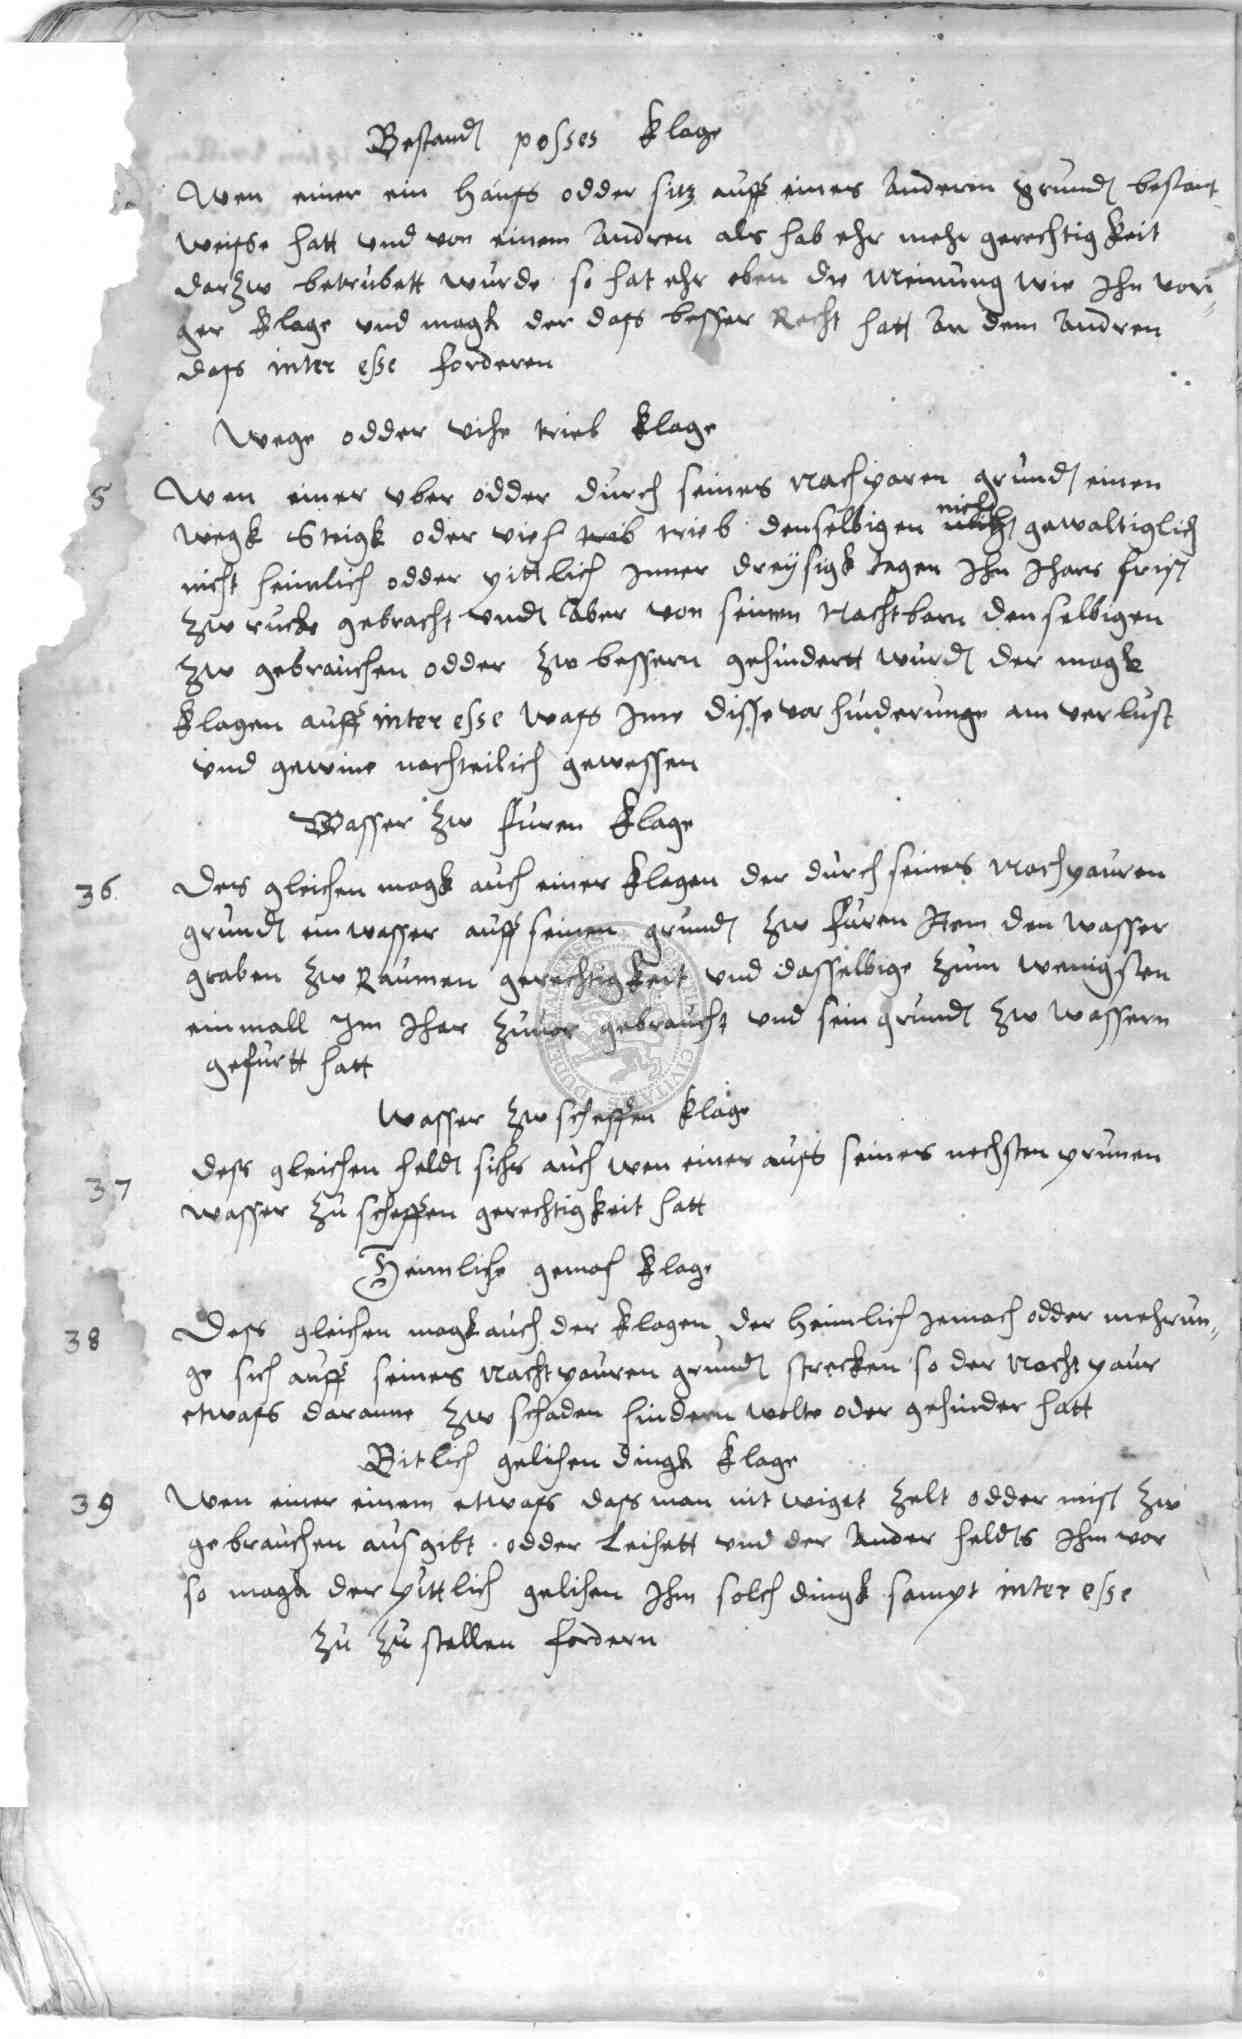 Bestandt posses klage
Wen einer ein haufs odder sitz auff eines Anderin grundt bestant
weifse hatt und von einem Andren als hab ehr mehr gerechtigkeit
darzw betrubett wurde so hat ehr eben die Meinung wie Ihn vori„
ger klage und magk der dafs besser Recht hatt An dem Andren
dafs inter esse forderen
Wege odder vihe trieb klage
5 Wen einer uber odder durch seines Nachparen grundt einen
wegk Steigk oder vieh trib trieb denselbigen nicht gewaltiglich
nicht heimlich odder pittlich Inner dreysigk tagen Ihn Ihars frist
zw rucke gebracht undt Aber von seinen Nachtbarn denselbigen
zw gebrauchen odder zw bessern gehindertt wurdt der magk
klagen auff inter esse wafs Ime disse vor hinderunge am verlust
und gewine nachteilich gewessen
Wasser zw furen klage
36. Des gleichen magk auch einer klagen der durch seines Nachpauren
grundt ein wasser auff seinen grundt zw furen Item den wasser
graben zw Raumen gerechtigkeit und dasselbige zum wenigsten
ein mall Im Ihar zuuor gebraucht und sein grundt zw wassern
gefurtt hatt
Wasser zw scheffen klage
37 Dess gleichen heldt sichs auch wen einer aufs seines nechsten prunen
wasser zu scheffen gerechtigkeit hatt
Heimliche gemach klage
38 Dess gleichen magk auch der klagen der heimlich gemach odder mehrun„
ge sich auff seines Nachtpauren grundt strecken so der Nachtpaur
etwafs daranne zw schaden hindern wolte oder gehinder hatt
Bitlich gelihen dingk klage
39 Wen einer einem etwafs dafs man nit wiget zelt odder mist zw
gebrauchen aufs gibt odder Leihett und der Ander heldts Ihm vor
so magk der pittlich gelihen Ihm solch dingk sampt inter esse
zu zu stellen fordern